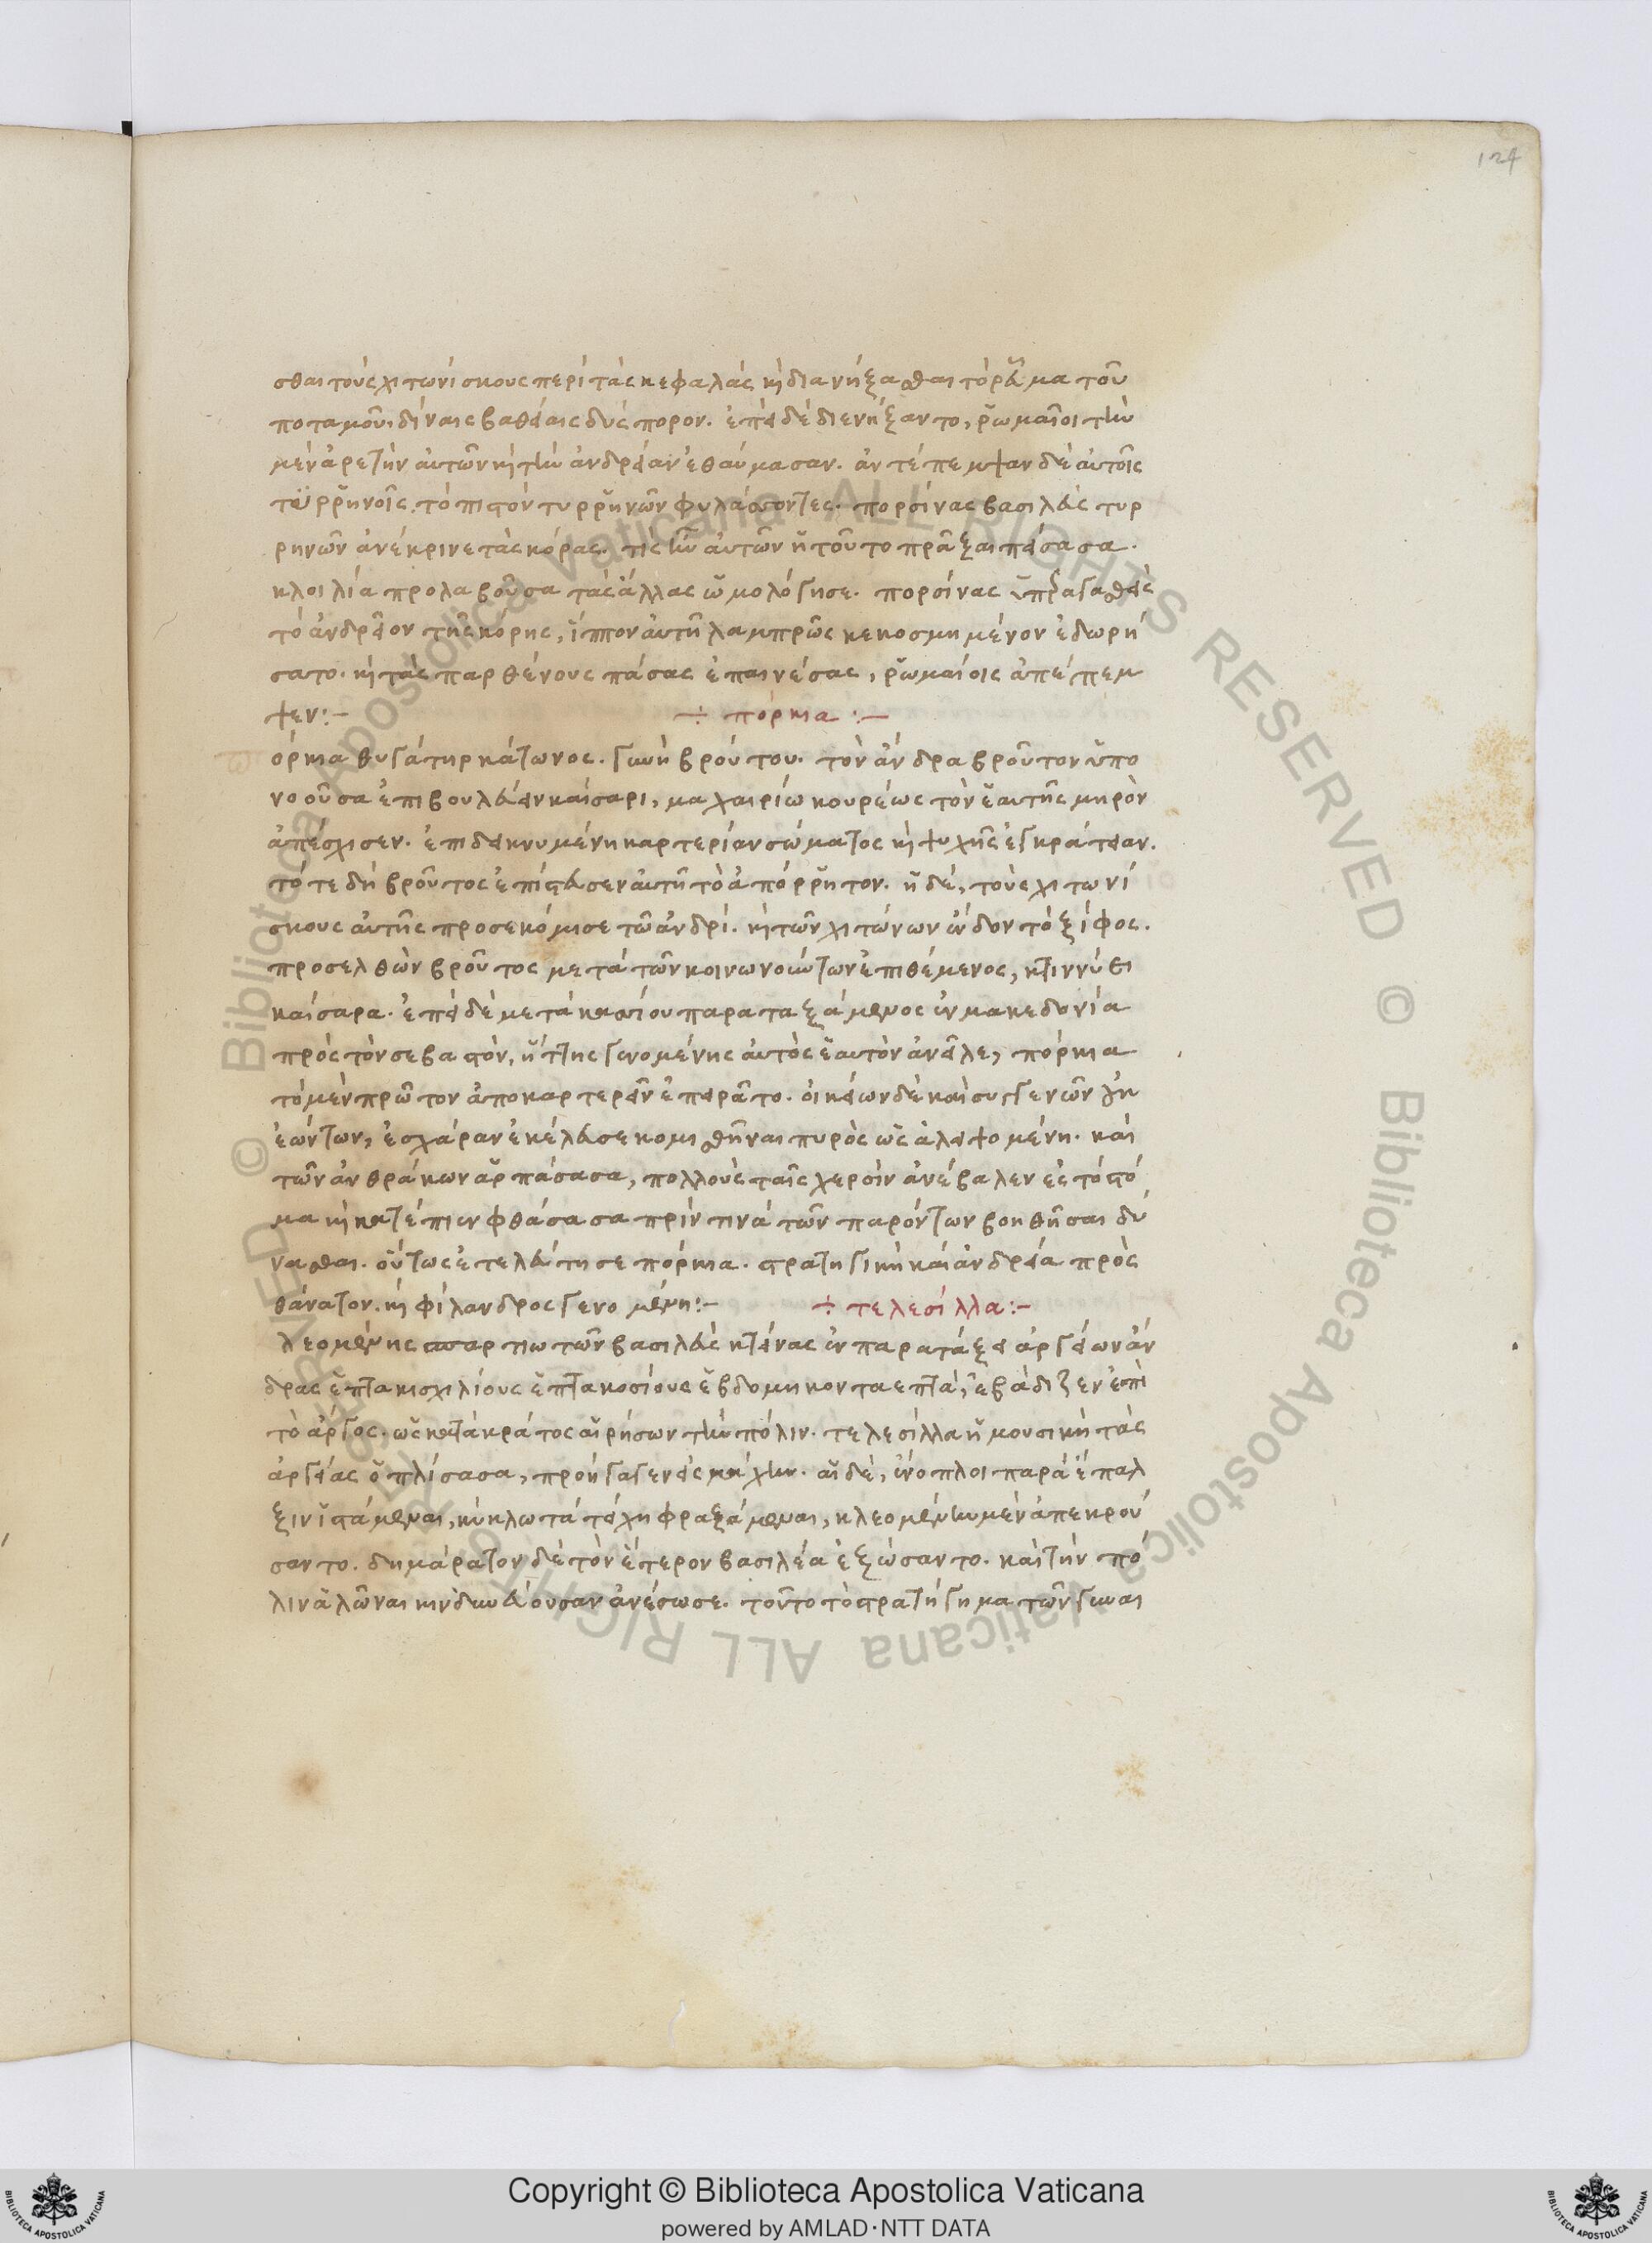 124
σθαι τοὺς χιτωνίσκους περὶ τὰς κεφαλὰς καὶ διανήξασθαι τὸ ῥεῦμα τοῦ
ποταμοῦ δίναις βαθείαις δύσπορον. ἐπεὶ δὲ διενήξαντο, ῥωμαῖοι τὴν
μὲν ἀρετὴν αὐτῶν καὶ τὴν ἀνδρείαν ἐθαύμασαν. ἀντέπεμψαν δὲ αὐτοῖς
τυρρηνοῖς. τὸ πιστὸν τυρρηνῶν φυλάσσοντες. πορσίνας βασιλεὺς τυρ
ρηνῶν ἀνέκρινε τὰς κόρας. τίς ἦν αὐτῶν ἡ τοῦτο πρᾶξαι πείσασα.
κλοιλία προλαβοῦσα τὰς ἄλλας ὡμολόγησε. πορσίνας ὑπεραγασθεὶς
τὸ ἀνδρεῖον τῆς κόρης, ἵππον αὐτῇ λαμπρῶς κεκοσμημένον ἐδωρή
σατο. καὶ τὰς παρθένους πάσας ἐπαινέσας, ῥωμαίοις ἀπέπεμ
ψεν:- ÷ πορκια :-
ορκια θυγάτηρ κάτωνος. γυνὴ βρούτου. τὸν ἄνδρα βροῦτον ὑπο
νοοῦσα ἐπιβουλεύειν καίσαρι, μαχαιρίω κουρέως τὸν ἑαυτῆς μηρὸν
ἀπέσχισεν. ἐπιδεικνυμένη καρτερίαν σώματος καὶ ψυχῆς ἐγκράτειαν.
τότε δὴ βροῦτος ἐπίστευσεν αὐτῇ τὸ ἀπόρρητον. ἡ δὲ, τοὺς χιτωνί
σκους αὐτῆς προσεκόμισε τῶ ἀνδρί. καὶ τῶν χιτώνων ἔνδον τὸ ξίφος.
προσελθὼν βροῦτος μετὰ τῶν κοινωνούντων ἐπιθέμενος, κτιννύει
καίσαρα. ἐπεὶ δὲ μετὰ κασσίου παραταξάμενος ἐν μακεδονία
πρὸς τὸν σεβαστὸν, ἥττης γενομένης αὐτὸς ἑαυτὸν ἀνεῖλε, πόρκια
τὸ μὲν πρῶτον ἀποκαρτερεῖν ἐπειρᾶτο. οἰκείων δὲ καὶ συγγενῶν οὐκ
ἐώντων, ἐσχάραν ἐκέλευσε κομισθῆναι πυρὸς ὡς ἀλειψομένη. καὶ
τῶν ἀνθράκων ἁρπάσασα, πολλοὺς ταῖς χερσὶν ἀνέβαλεν εἰς τὸ στό
μα καὶ κατέπιεν φθάσασα πρίν τινα τῶν παρόντων βοηθῆσαι δύ
νασθαι. οὕτως ἐτελεύτησε πόρκια. στρατηγικὴ καὶ ἀνδρεία πρὸς
θάνατον. καὶ φίλανδρος γενομένη:- ÷ τελεσίλλα:-
λεομένης σπαρτιωτῶν βασιλεὺς κτείνας ἐν παρατάξει ἀργείων ἄν
δρας ἑπτακισχιλίους ἑπτακοσίους ἑβδομηκονταεπτὰ, ἐβάδιζεν ἐπὶ
τὸ ἄργος. ὡς κατὰ κράτος αἱρήσων τὴν πόλιν. τελεσίλλα ἡ μουσικὴ τὰς
ἀργείας ὁπλίσασα, προήγαγεν εἰς μάχην. αἱ δὲ, ἔνοπλοι παρὰ ἔπαλ
ξιν ἱστάμεναι, κύκλω τὰ τείχη φραξάμεναι, κλεομένην μὲν ἀπεκρού
σαντο. δημάρατον δὲ τὸν ἕτερον βασιλέα ἐξώσαντο. καὶ τὴν πό
λιν ἁλῶναι κινδυνεύουσαν ἀνέσωσε. τοῦτο τὸ στρατήγημα τῶν γυναι
© Biblioteca Apostolica Vaticana ALL RIGHTS RESERVED
Copyright © Biblioteca Apostolica Vaticana
powered by AMLAD·NTT DATA